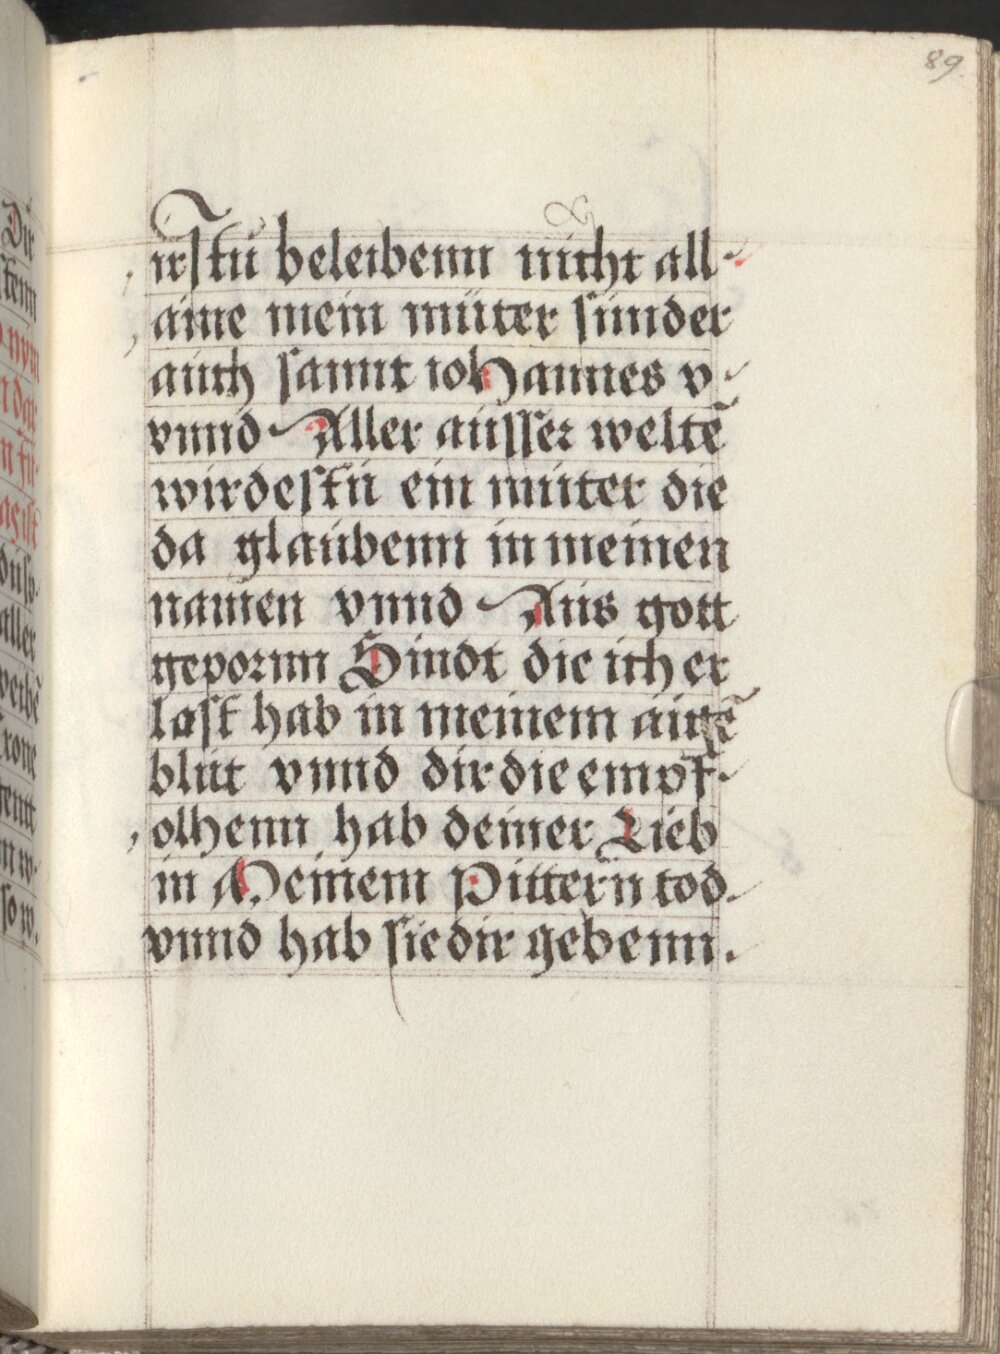 89
irstu beleibenn nicht all-
aine mein müter sunder
auch sannt iohannes v-
vnnd Aller ausser weltē
wirdestu ein muter die
da glaubenn in meinen
namen vnnd Aus gott
gepornn Sindt die ich er
lost hab in meinem aigē
blut vnnd dir die empf-
olhenn hab deiner Lieb
in Meinem Pittern tod
vnnd hab sie dir gebenn.